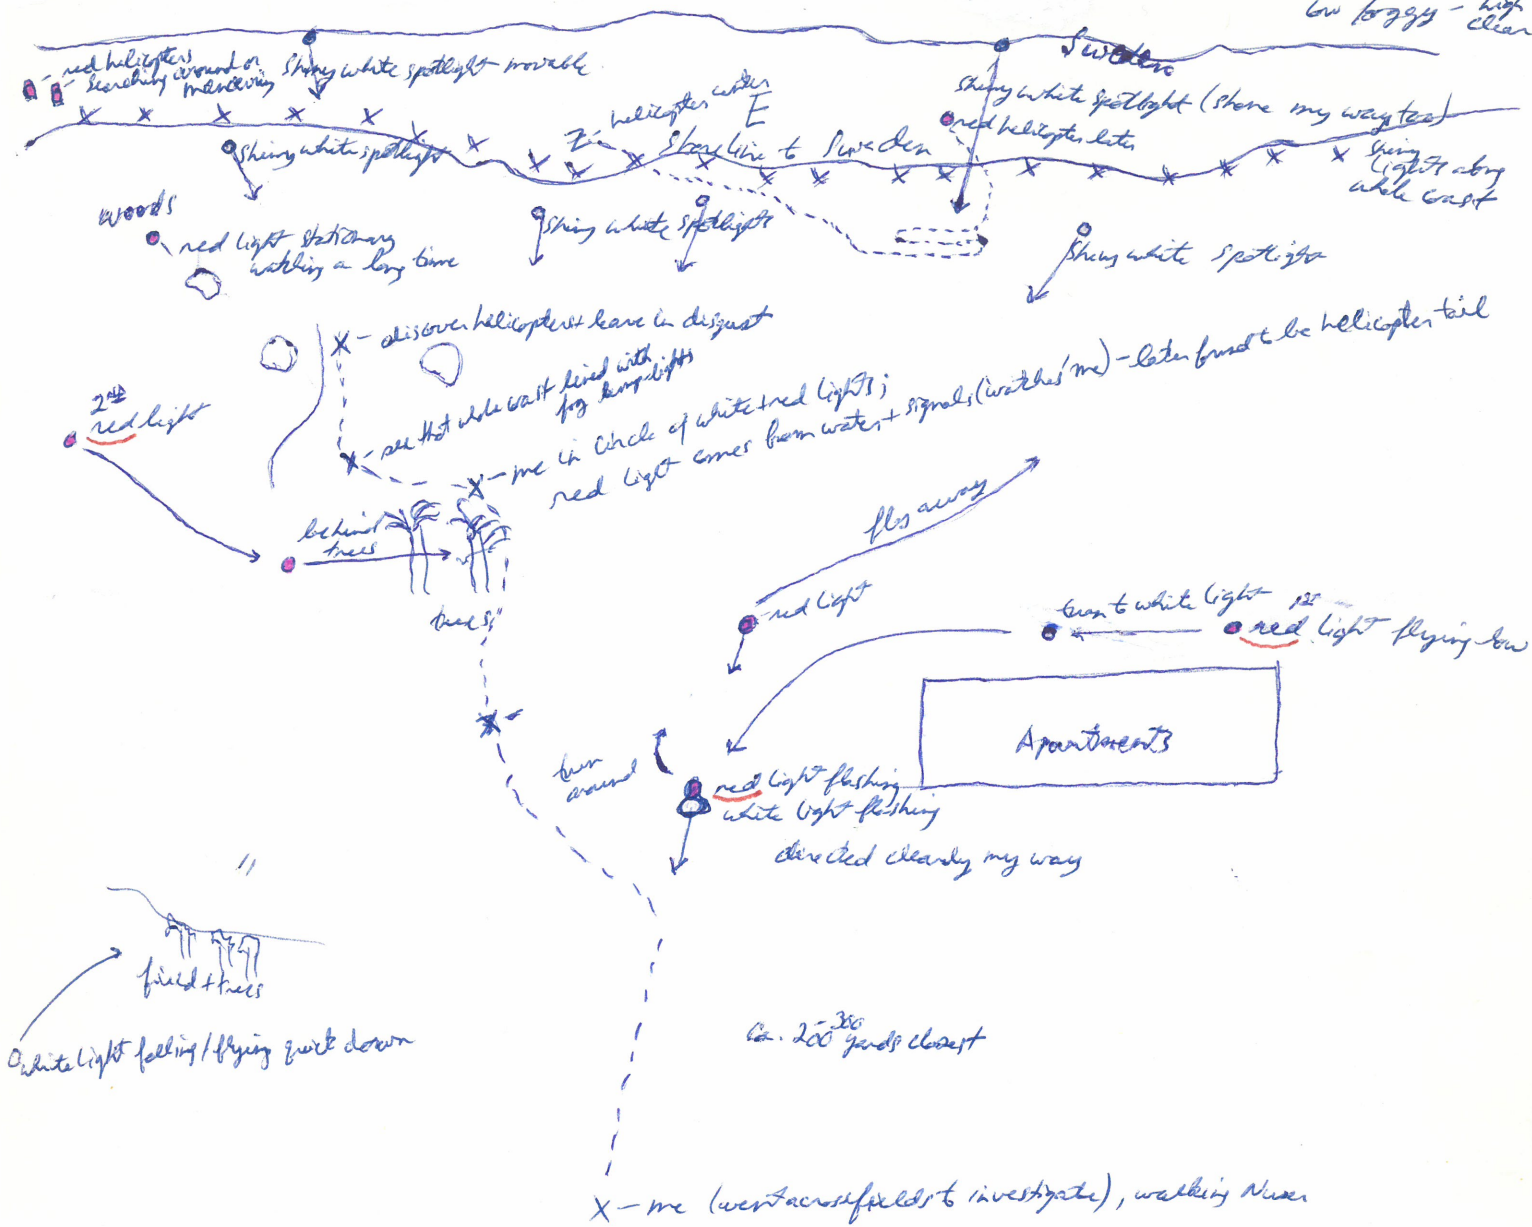 low foggy - high
clear
red helicopters
searching around or
maneuvering
shiny white spotlight movable
Sweden
shiny white spotlight (shone my way too)
helicopter
E
red helicopter later
shiny white spotlight
Shoreline to Sweden
shiny
lights along
whole coast
woods
red light stationary
watching a long time
shiny white spotlights
shiny white spotlight
discover helicopters + leave in disgust
see that whole coast lined with
fog lamp lights
2nd
red light
me in circle of white + red lights;
red light comes from water + signals (watches me) - later found to be helicopter tail
behind
trees
flys away
trees
red light
turn to white light
1st
red light flying low
Apartments
turn
around
red light flashing
white light flashing
directed clearly my way
field + trees
white light falling/flying quick down
Ca. 200-300 yards closest
X - me (went across fields to investigate), walking